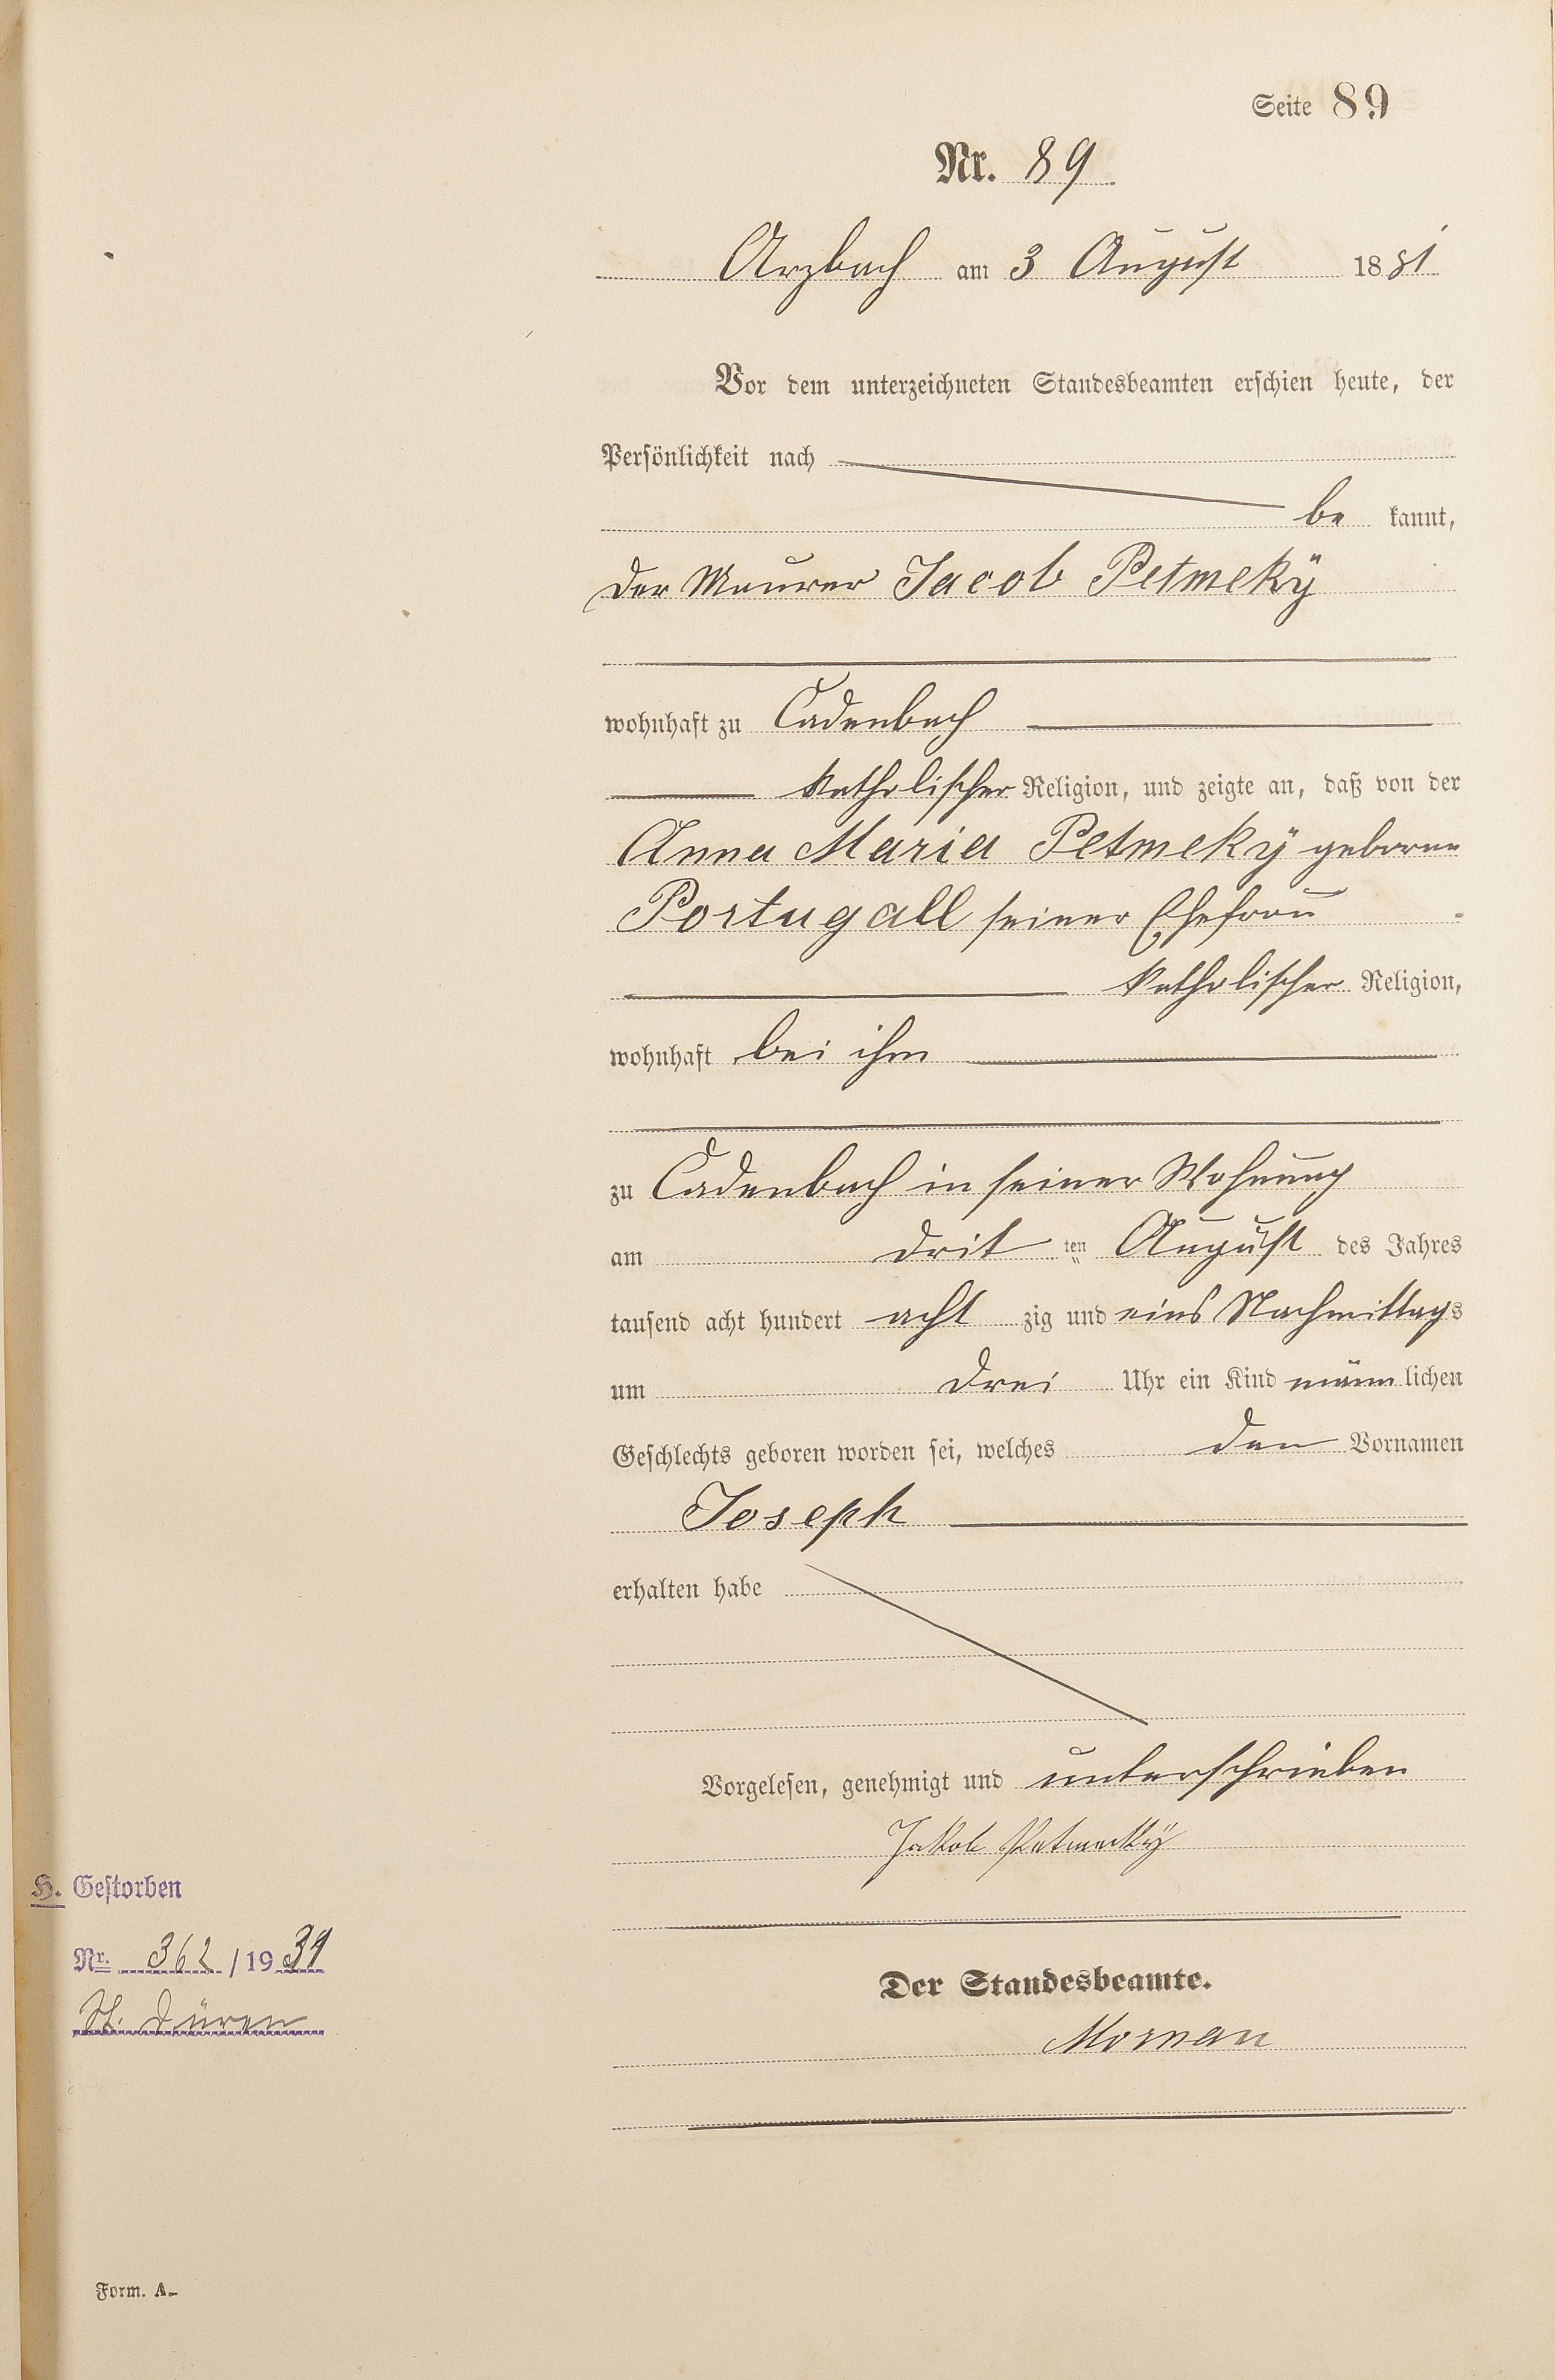 Seite 89
Nr. 89
Arzbach am 3 August 1881
Vor dem unterzeichneten Standesbeamten erschien heute, der
Persönlichkeit nach
be kannt,
der Maurer Jacob Petmekÿ
wohnhaft zu Cadenbach
katholischer Religion, und zeigte an, daß von der
Anna Maria Petmekÿ geborne
Portugall seiner Ehefrau
katholischer Religion,
wohnhaft bei ihm
zu Cadenbach in seiner Wohnung
am drit ten August des Jahres
tausend acht hundert acht zig und eins Nachmittags
um drei Uhr ein Kind männlichen
Geschlechts geboren worden sei, welches den Vornamen
Joseph
erhalten habe
Vorgelesen, genehmigt und unterschrieben
Jakob Petmeckÿ
Der Standesbeamte.
H. Gestorben
Nr. 362/1939
St. Düren
Form. A.